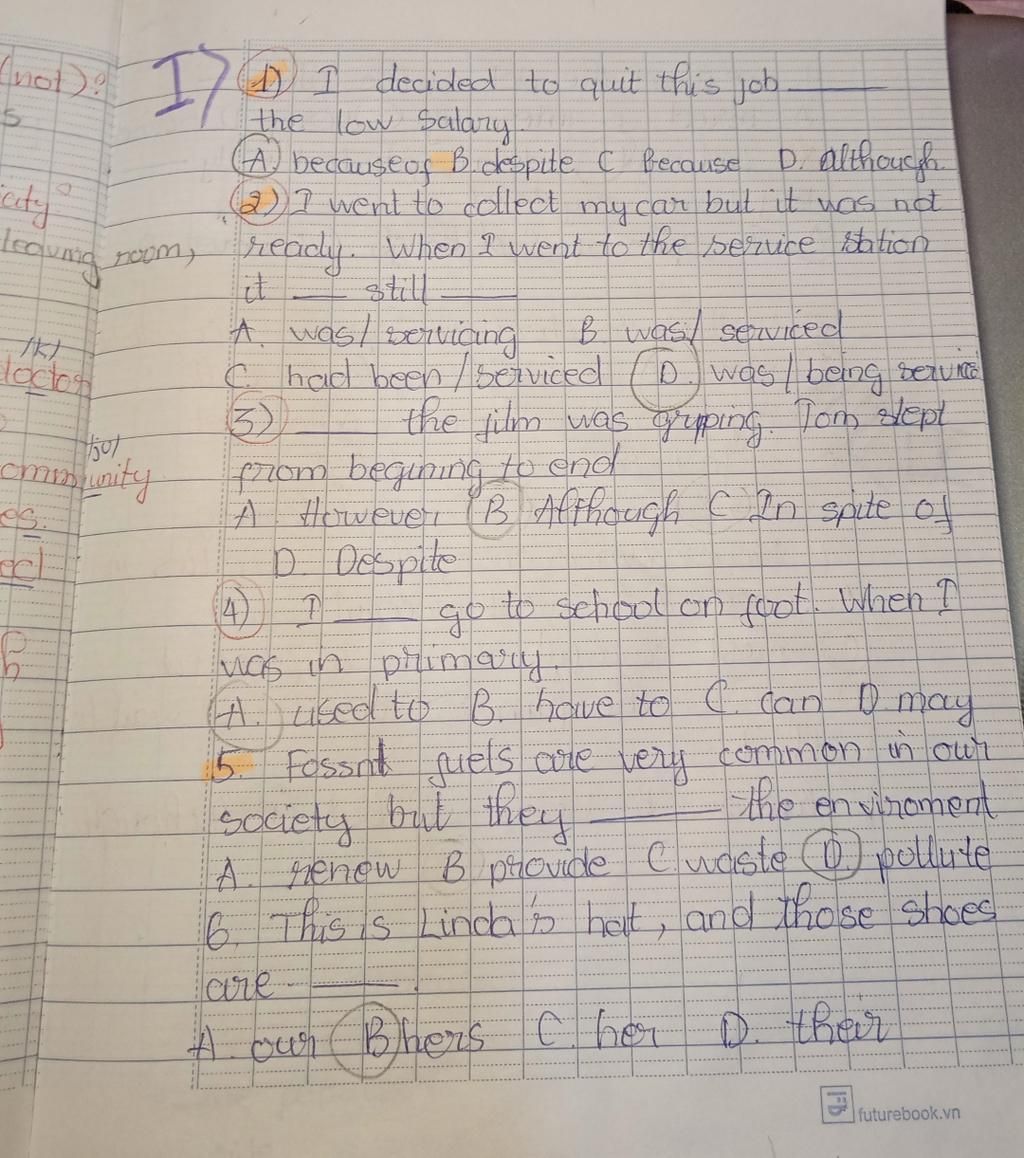 (not)?
s
city?
leaving room,
/k/
loctor
/ju/
ommunity
es.
ed
I) 1) I decided to quit this job ____
the low salary.
A) because of B. despite C Because D. although
2) I went to collect my car but it was not
ready. When I went to the service station
it ___ still ____
A. was/ servicing B was/ serviced
C. had been / serviced D. was / being service
3) ____ the film was gripping. Tom slept
from begining to end
A However B Although C In spite of
D. Despite
4) I ____ go to school on foot. When I
was in primary.
A. used to B. have to C. can D may
5. Fossnt fuels are very common in our
society but they ______ the enviroment
A. renew B provide C. waste D. pollute
6. This is Linda's hat, and those shoes
are ____.
A. our B hers C. her D. their
futurebook.vn